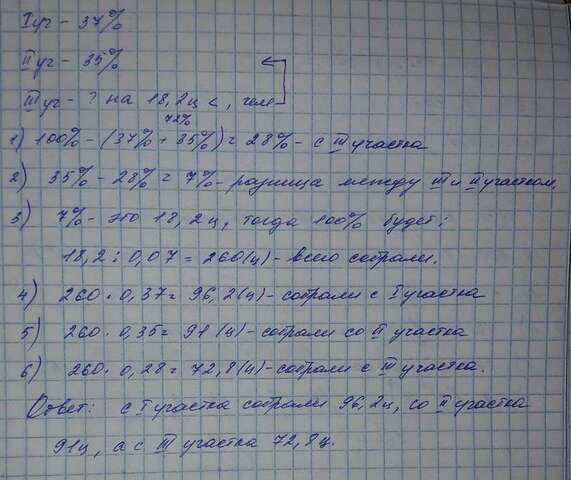 I уч - 37%
II уч - 35%
III уч - ? на 18,2ц <, чем
72%
1) 100% - (37% + 35%) = 28% - с III участка
2) 35% - 28% = 7% - разница между III и II участком.
3) 7% - это 18,2ц, тогда 100% будет:
18,2 : 0,07 = 260(ц) - всего собрали.
4) 260 · 0,37 = 96,2(ц) - собрали с I участка
5) 260 · 0,35 = 91 (ц) - собрали со II участка
6) 260 · 0,28 = 72,8(ц) - собрали с III участка.
Ответ: с I участка собрали 96,2ц, со II участка
91ц, а с III участка 72,8ц.